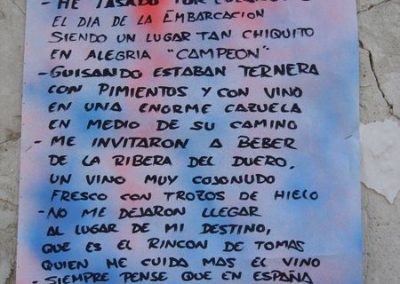 - ME PASADO POR
EL DIA DE LA EMBARCACION
SIENDO UN LUGAR TAN CHIQUITO
EN ALEGRIA "CAMPEON"
- GUISANDO ESTABAN TERNERA
CON PIMIENTOS Y CON VINO
EN UNA ENORME CAZUELA
EN MEDIO DE SU CAMINO
- ME INVITARON A BEBER
DE LA RIBERA DEL DUERO,
UN VINO MUY COJONUDO
FRESCO CON TROZOS DE HIELO
- NO ME DEJARON LLEGAR
AL LUGAR DE MI DESTINO,
QUE ES EL RINCON DE TOMAS
QUIEN ME CUIDA MAS EL VINO
- SIEMPRE PENSE QUE EN ESPAÑA